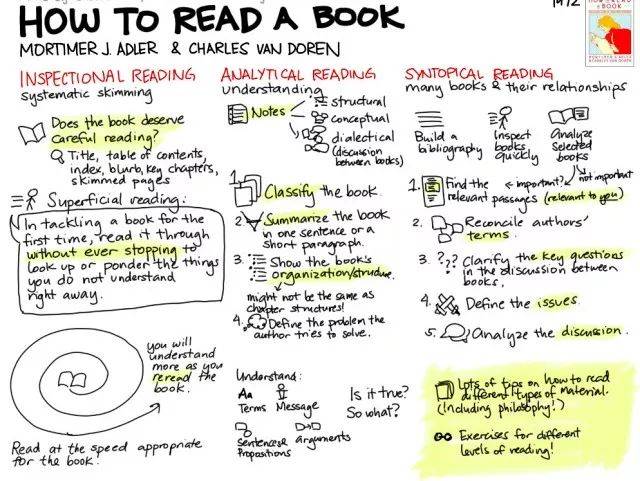 HOW TO READ A BOOK
1972
MORTIMER J. ADLER & CHARLES VAN DOREN
INSPECTIONAL READING
systematic skimming
Does the book deserve
careful reading?
Title, table of contents,
index, blurb, key chapters,
skimmed pages
Superficial reading:
In tackling a book for the
first time, read it through
without ever stopping to
look up or ponder the things
you do not understand
right away.
you will
understand
more as you
reread the
book.
Read at the speed appropriate
for the book.
ANALYTICAL READING
understanding
Notes
structural
conceptual
dialectical
(discussion
between books)
1. Classify the book.
2. Summarize the book
in one sentence or a
short paragraph.
3. Show the book's
organization/structure.
might not be the same as
chapter structures!
4. Define the problem the
author tries to solve.
Understand:
Aa
Terms Message
Sentences &
Propositions
arguments
Is it true?
So what?
SYNTOPICAL READING
many books & their relationships
Build a
bibliography
Inspect
books
quickly
Analyze
selected
books
1. Find the
relevant passages
important?
not important
(relevant to you)
2. Reconcile authors'
terms.
3. ?? Clarify the key questions
in the discussion between
books.
4. Define the issues.
5. Analyze the discussion.
Lots of tips on how to read
different types of material.
(Including philosophy!)
Exercises for different
levels of reading!